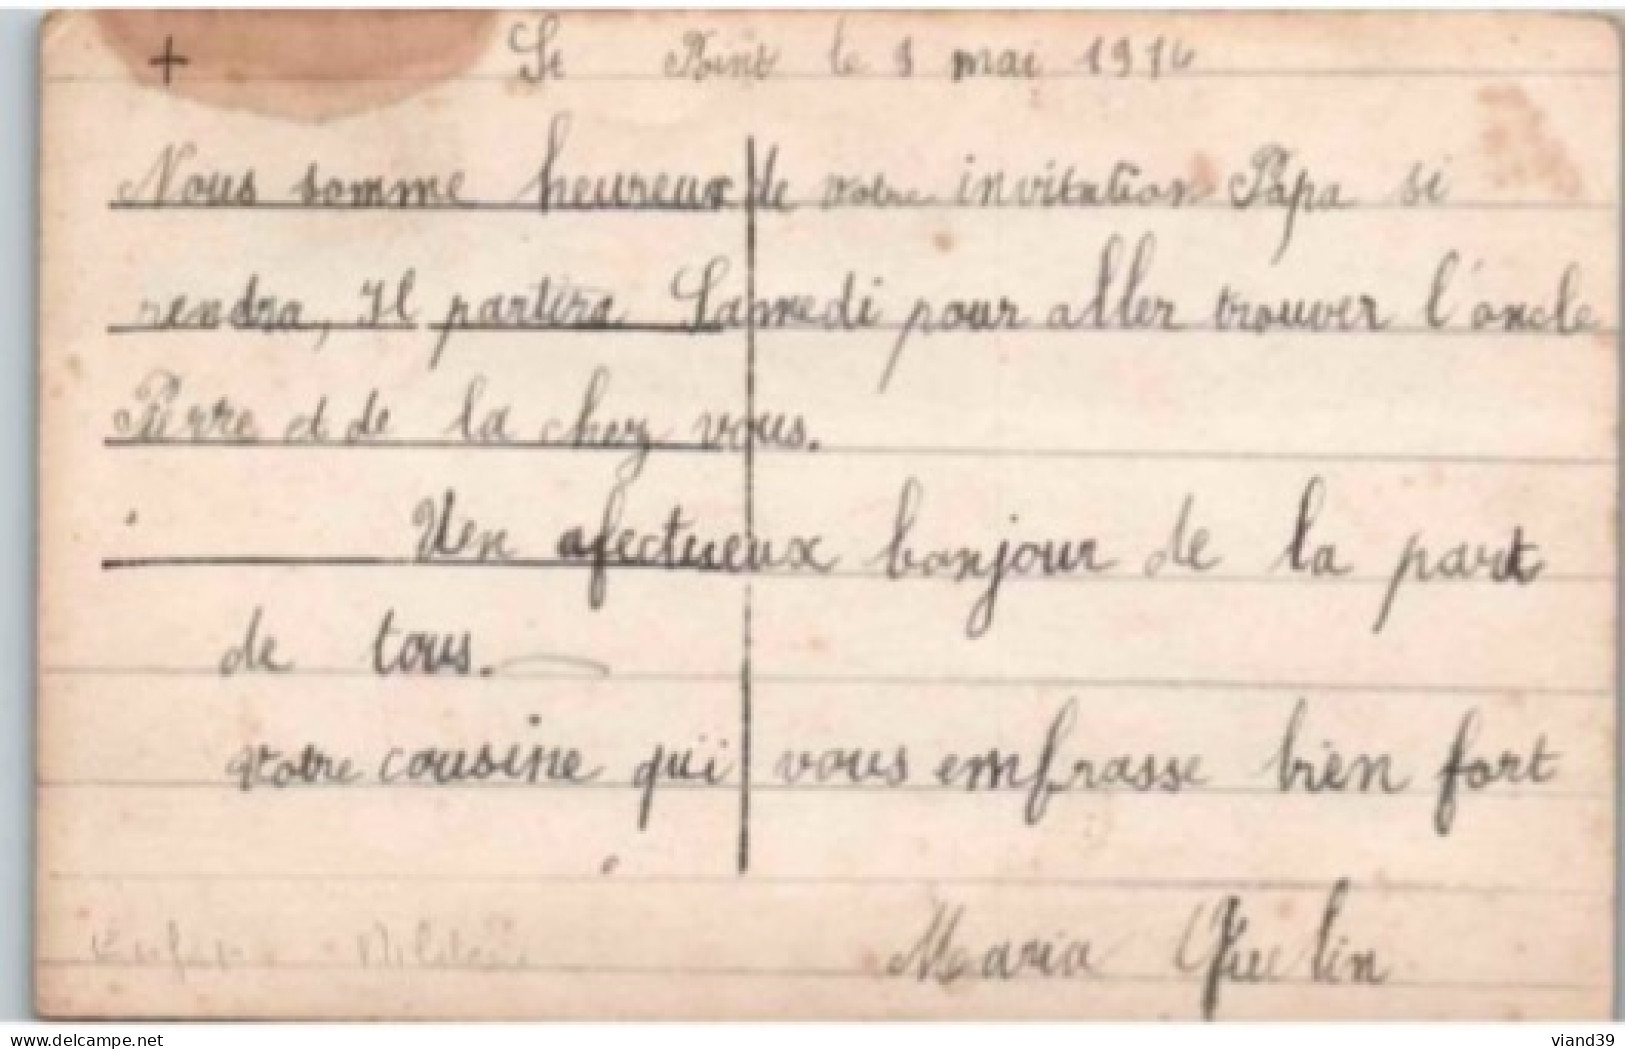 + St Point le 1 mai 1916
Nous somme heureux de votre invitation Papa si
rendra, Il partira Samedi pour aller trouver l'oncle
Pierre et de la chez vous.
Uen afectueux bonjour de la part
de tous.
votre cousine qui vous embrasse bien fort
Maria
Militaire
delcampe.net
viand39